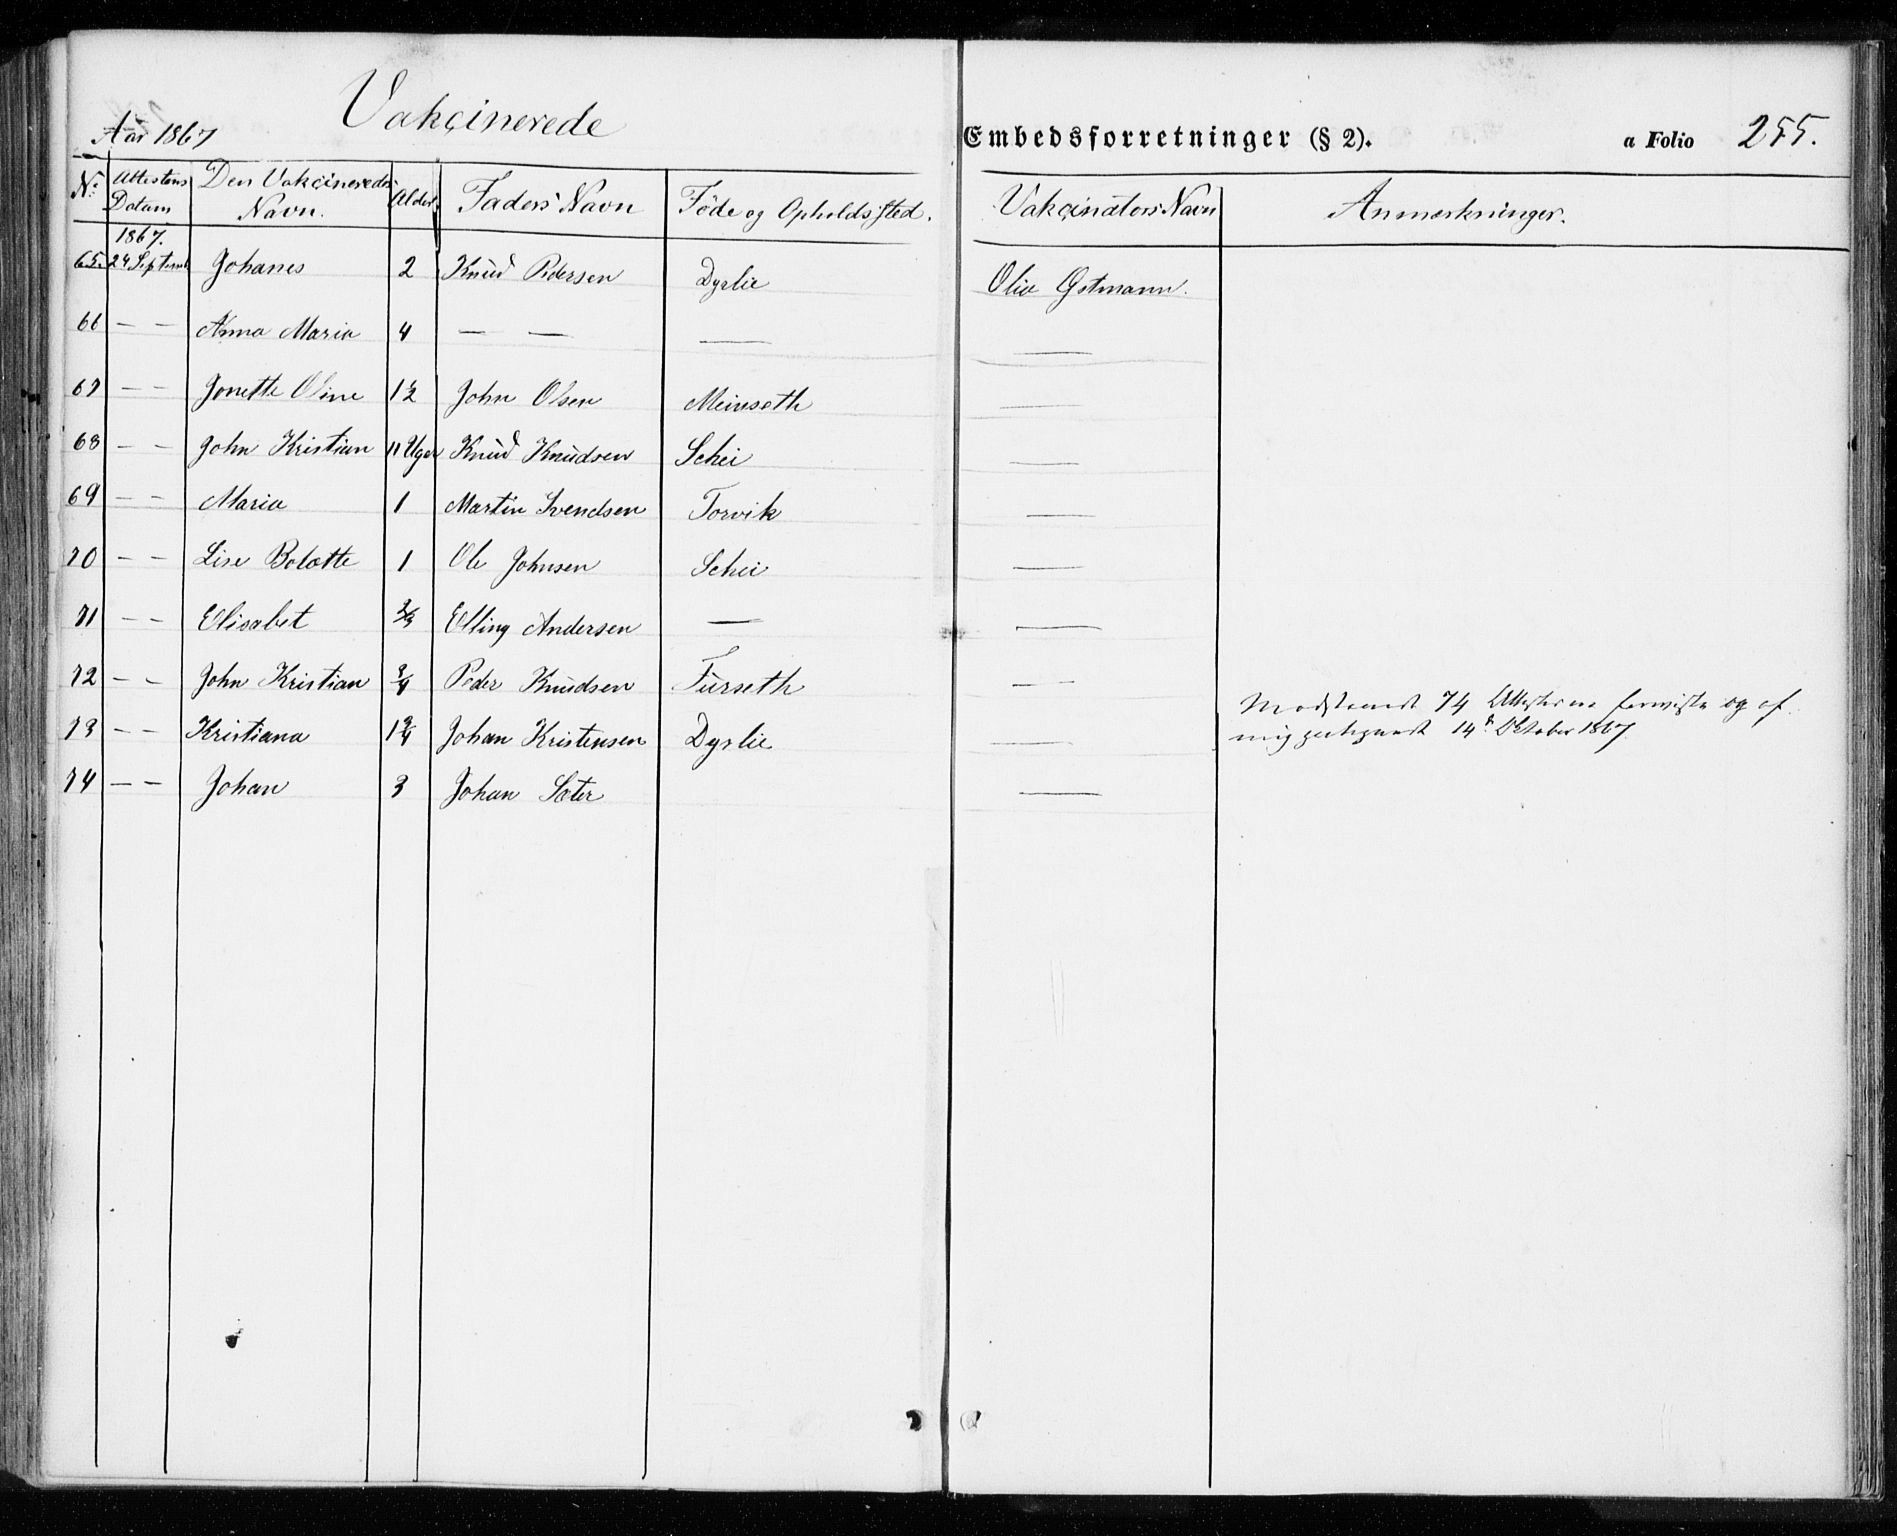 Vakcinerede
Aar 1867
Embedsforretninger (§ 2).
a Folio 255.
No Attestens Datum Den Vakcineredes Navn. Alder. Faders Navn Føde og Opholdssted. Vakcinators Navn Anmærkninger.
1867.
65. 24 Septemb Johanes 2 Knud Pedersen Dyrlie Olia Østmann.
66 — — Anna Maria 4 — — — —
67 — — Jonette Oline 1½ John Olsen Meinseth —
68 — — John Kristian 11 Uger Knud Knudsen Schei —
69 — — Maria 1 Martin Svendsen Torvik —
70 — — Lise Bolætte 1 Ole Johnsen Schei —
71 — — Elisabet Elling Andersen — —
72 — — John Kristian ¾ Peder Knudsen Furseth —
73 — — Kristiana 1¾ Johan Kristensen Dyrlie —
74 — — Johan 3 Johan Sæter —
74 Attester og af
mig 14 October 1867.